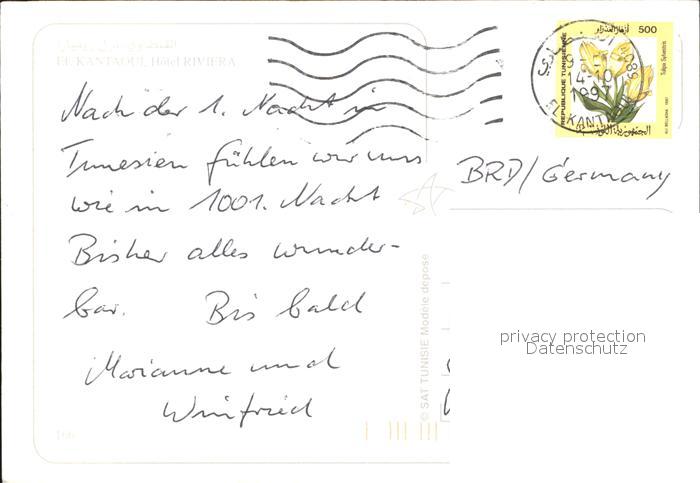 EL KANTAOUI, Hôtel RIVIERA
Nach der 1. Nacht in
Tunesien fühlen wir uns
wie in 1001. Nacht
Bisher alles wunder-
bar. Bis bald
Marianne und
Winfried
© SAT TUNISIE Modèle déposé
REPUBLIQUE TUNISIENNE
500
Tulipa Sylvestris
1997
EL KANTAOUI
BRD/Germany
privacy protection
Datenschutz